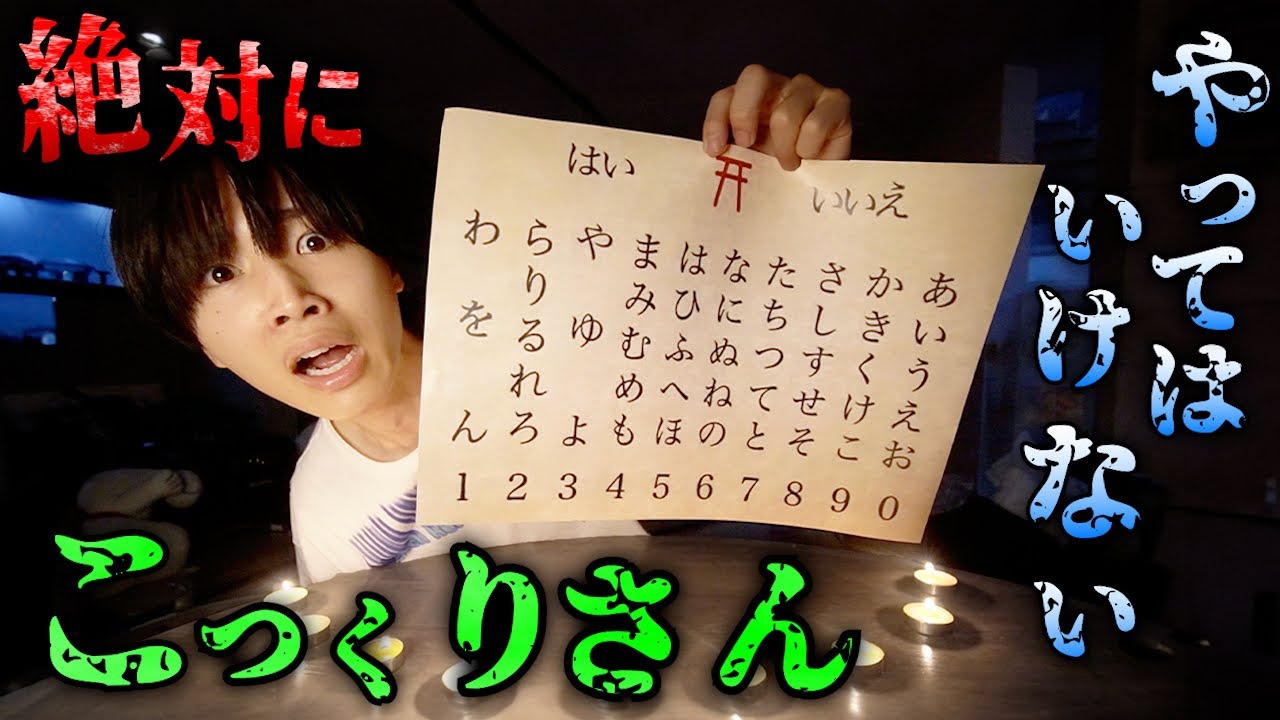 絶対に
やってはいけない
こっくりさん
はい
いいえ
あいうえお
かきくけこ
さしすせそ
たちつてと
なにぬねの
はひふへほ
まみむめも
やゆよ
らりるれろ
わをん
1 2 3 4 5 6 7 8 9 0